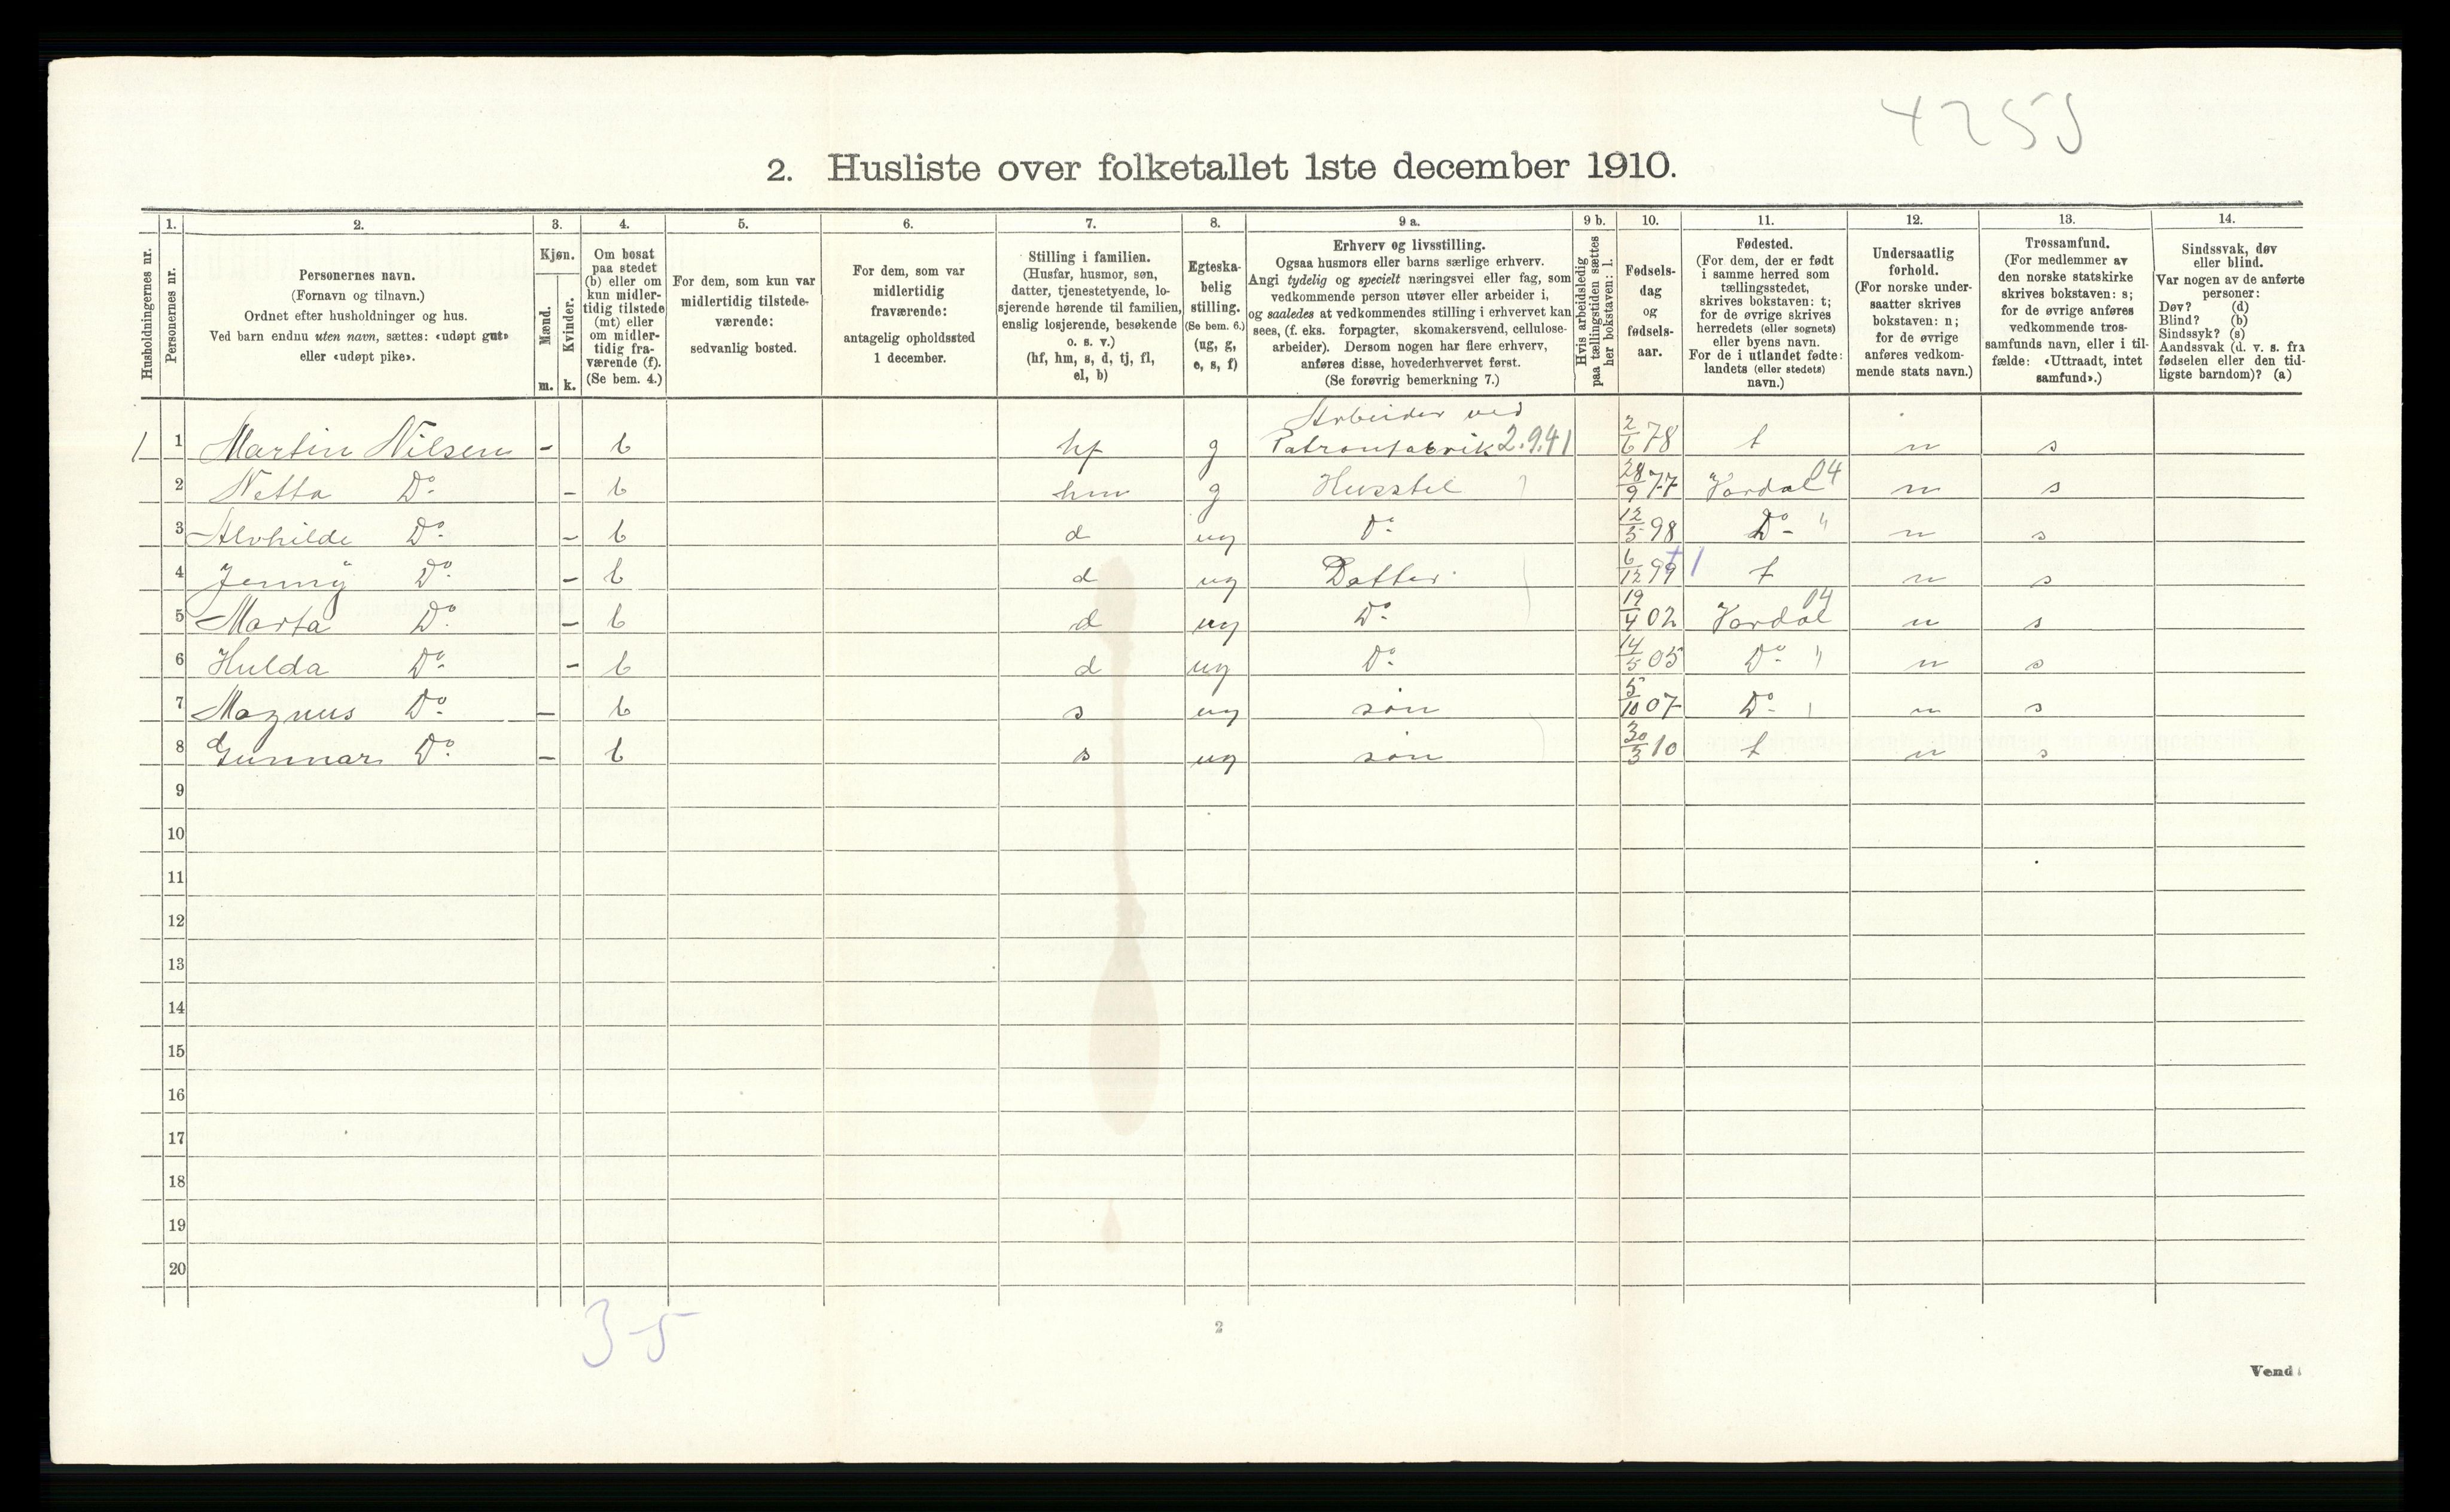 4255
2. Husliste over folketallet 1ste december 1910.
Husholdningernes nr.
1.
Personernes nr.
2.
Personernes navn.
(Fornavn og tilnavn.)
Ordnet efter husholdninger og hus.
Ved barn endnu uten navn, sættes: «udøpt gut»
eller «udøpt pike».
3.
Kjøn.
Mænd.
m.
Kvinder.
k.
4.
Om bosat
paa stedet
(b) eller om
kun midler-
tidig tilstede
(mt) eller
om midler-
tidig fra-
værende (f).
(Se bem. 4.)
5.
For dem, som kun var
midlertidig tilstede-
værende:
sedvanlig bosted.
6.
For dem, som var
midlertidig
fraværende:
antagelig opholdssted
1 december.
7.
Stilling i familien.
(Husfar, husmor, søn,
datter, tjenestetyende, lo-
sjerende hørende til familien,
enslig losjerende, besøkende
o. s. v.)
(hf, hm, s, d, tj, fl,
el, b)
8.
Egteska-
belig
stilling.
(Se bem. 6.)
(ug, g,
e, s, f)
9 a.
Erhverv og livsstilling.
Ogsaa husmors eller barns særlige erhverv.
Angi tydelig og specielt næringsvei eller fag, som
vedkommende person utøver eller arbeider i,
og saaledes at vedkommendes stilling i erhvervet kan
sees, (f. eks. forpagter, skomakersvend, cellulose-
arbeider). Dersom nogen har flere erhverv,
anføres disse, hovederhvervet først.
(Se forøvrig bemerkning 7.)
9 b.
Hvis arbeidsledig
paa tællingstiden sættes
her bokstaven: l.
10.
Fødsels-
dag
og
fødsels-
aar.
11.
Fødested.
(For dem, der er født
i samme herred som
tællingsstedet,
skrives bokstaven: t;
for de øvrige skrives
herredets (eller sognets)
eller byens navn.
For de i utlandet fødte:
landets (eller stedets)
navn.)
12.
Undersaatlig
forhold.
(For norske under-
saatter skrives
bokstaven: n;
for de øvrige
anføres vedkom-
mende stats navn.)
13.
Trossamfund.
(For medlemmer av
den norske statskirke
skrives bokstaven: s;
for de øvrige anføres
vedkommende tros-
samfunds navn, eller i til-
fælde: «Uttraadt, intet
samfund».)
14.
Sindssvak, døv
eller blind.
Var nogen av de anførte
personer:
Døv? (d)
Blind? (b)
Sindssyk? (s)
Aandssvak (d. v. s. fra
fødselen eller den tid-
ligste barndom)? (a)
Arbeider ved
1 1 Martin Nilsen - b hf g Patronfabrik 2.9.41 2/6 78 t n s
2 Netta Do - b hm g Husstel 28/9 77 Vardal 04 n s
3 Alvhilde Do - b d ug Do 12/5 98 Do " n s
4 Jenny Do - b d ug Datter 6/12 99 t n s
5 Marta Do - b d ug Do 19/4 02 Vardal 04 n s
6 Hulda Do - b d ug Do 14/5 05 Do " n s
7 Magnus Do - b s ug søn 5/10 07 Do " n s
8 Gunnar Do - b s ug søn 30/3 10 t n s
9
10
11
12
13
14
15
16
17
18
19
20
3-5
2
Vend